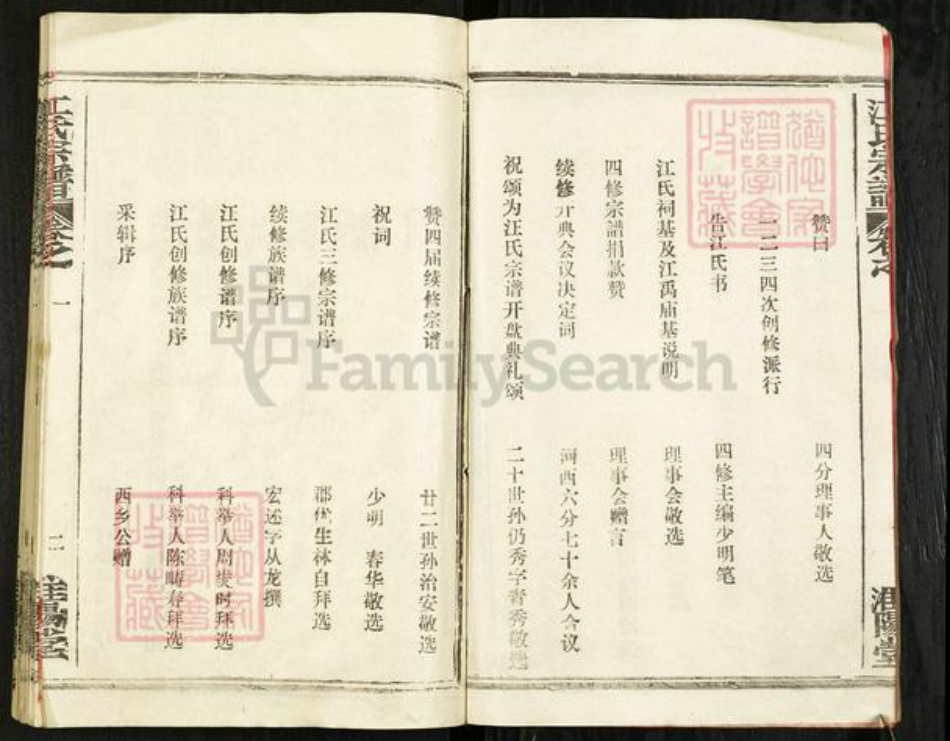 江氏宗譜
卷之
淮陽堂
赞曰
四分理事人敬选
一二三四次创修派行
告江氏书
四修主编少明笔
江氏祠基及江禹庙基说明
理事会敬选
四修宗譜捐款赞
理事会赠言
续修开典会议决定词
河西六分七十余人合议
祝颂为汪氏宗谱开盘典礼颂
二十世孙仍秀字青秀敬选
赞四届续修宗谱
廿二世孙治安敬选
祝词
少明 春华敬选
江氏三修宗谱序
郡优生林自拜选
续修族谱序
宏述字从龙撰
江氏创修谱序
科举人周 时拜选
江氏创修族谱序
科举人陈畴寿拜选
采辑序
西乡公赠
江氏宗譜
卷之一
二
淮陽堂
猶他家譜學會收藏
猶他家譜學會收藏
FamilySearch